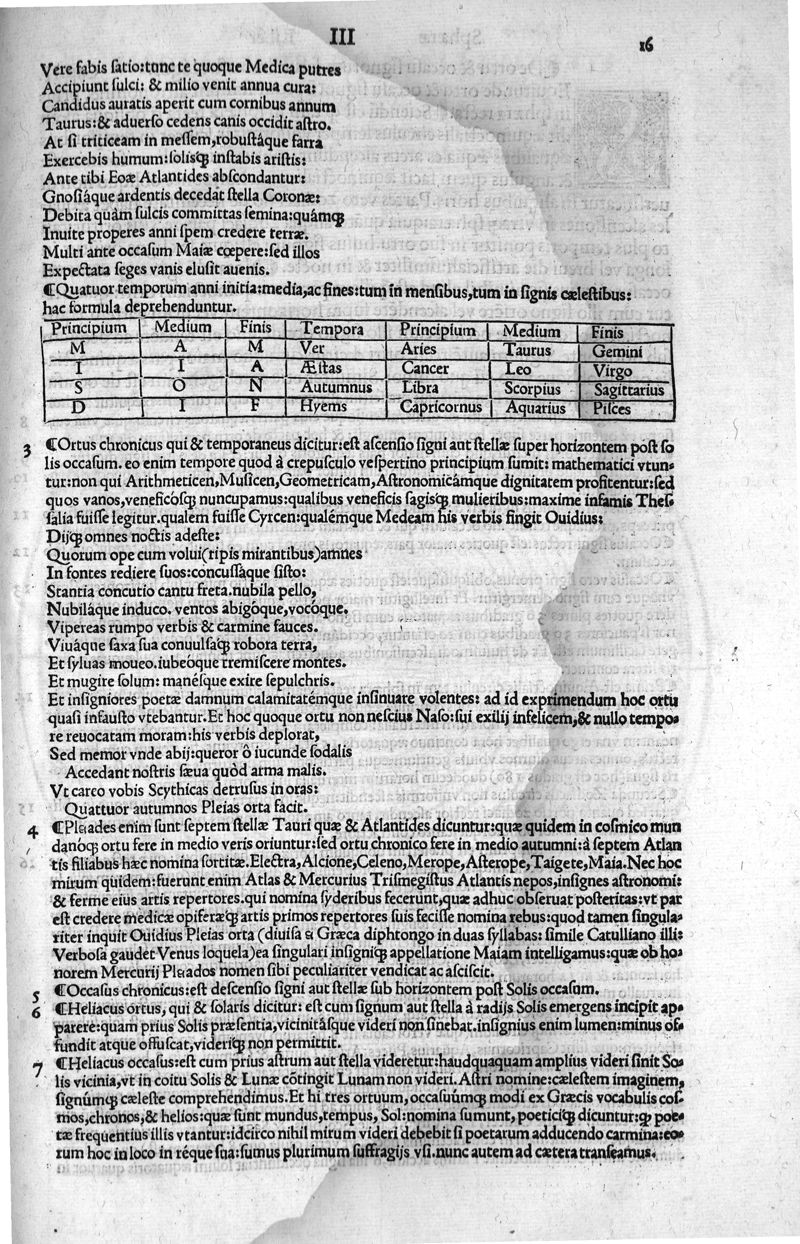 III
16
Vere fabis ſatio:tunc te quoque Medica putres
Accipiunt ſulci: & milio venit annua cura:
Candidus auratis aperit cum cornibus annum
Taurus:& aduerſo cedens canis occidit aſtro.
At ſi triticeam in meſſem,robuſtáque farra
Exercebis humum:ſolisq́ꝫ inſtabis ariſtis:
Ante tibi Eoæ Atlantides abſcondantur:
Gnoſiáque ardentis decedat ſtella Coronæ:
Debita quàm ſulcis committas ſemina:quámqꝫ
Inuite properes anni ſpem credere terræ.
Multi ante occaſum Maiæ cœpere:ſed illos
Expectata ſeges vanis eluſit auenis.
¶Quatuor temporum anni initia:media,ac fines:tum in menſibus,tum in ſignis cæleſtibus:
hac formula deprehenduntur.
Principium Medium Finis Tempora Principium Medium Finis
M A M Ver Aries Taurus Gemini
I I A Æſtas Cancer Leo Virgo
S O N Autumnus Libra Scorpius Sagittarius
D I F Hyems Capricornus Aquarius Piſces
3 ¶Ortus chronicus qui & temporaneus dicitur:eſt aſcenſio ſigni aut ſtellæ ſuper horizontem poſt ſo
lis occaſum. eo enim tempore quod à crepuſculo veſpertino principium ſumit: mathematici vtun-
tur:non qui Arithmeticen,Muſicen,Geometricam,Aſtronomicámque dignitatem profitentur:ſed
quos vanos,veneficóſqꝫ nuncupamus:qualibus veneficis ſagisqꝫ mulieribus:maxime infamis Theſ-
ſalia fuiſſe legitur.qualem fuiſſe Cyrcen:qualémque Medeam his verbis fingit Ouidius:
Dijqꝫ omnes noctis adeſte:
Quorum ope cum volui(ripis mirantibus)amnes
In fontes rediere ſuos:concuſſáque ſiſto:
Stantia concutio cantu freta.nubila pello,
Nubiláque induco. ventos abigóque,vocóque.
Vipereas rumpo verbis & carmine fauces.
Viuáque ſaxa ſua conuulſaqꝫ robora terra,
Et ſyluas moueo.iubeóque tremiſcere montes.
Et mugire ſolum: manéſque exire ſepulchris.
Et inſigniores poetæ damnum calamitatémque inſinuare volentes: ad id exprimendum hoc ortu
quaſi infauſto vtebantur.Et hoc quoque ortu non neſcius Naſo:ſui exilij infelicem,& nullo tempo-
re reuocatam moram:his verbis deplorat,
Sed memor vnde abij:queror ô iucunde ſodalis
Accedant noſtris ſæua quòd arma malis.
Vt careo vobis Scythicas detruſus in oras:
Quattuor autumnos Pleias orta facit.
4 ¶Pleiades enim ſunt ſeptem ſtellæ Tauri quæ & Atlantides dicuntur:quæ quidem in coſmico mun
danóqꝫ ortu fere in medio veris oriuntur:ſed ortu chronico fere in medio autumni:à ſeptem Atlan
tis filiabus hæc nomina ſortitæ.Electra,Alcione,Celeno,Merope,Aſterope,Taigete,Maia.Nec hoc
mirum quidem:fuerunt enim Atlas & Mercurius Triſmegiſtus Atlantis nepos,inſignes aſtronomi:
& ferme eius artis repertores.qui nomina ſyderibus fecerunt,quæ adhuc obſeruat poſteritas:vt par
eſt credere medicæ opiferæqꝫ artis primos repertores ſuis feciſſe nomina rebus:quod tamen ſingula-
riter inquit Ouidius Pleias orta (diuiſa ei Græca diphtongo in duas ſyllabas: ſimile Catulliano illi:
Verboſa gaudet Venus loquela)ea ſingulari inſigniqꝫ appellatione Maiam intelligamus:quæ ob ho-
norem Mercurij Pleiados nomen ſibi peculiariter vendicat ac aſciſcit.
5 ¶Occaſus chronicus:eſt deſcenſio ſigni aut ſtellæ ſub horizontem poſt Solis occaſum.
6 ¶Heliacus ortus, qui & ſolaris dicitur: eſt cum ſignum aut ſtella à radijs Solis emergens incipit ap-
parere:quam prius Solis præſentia,vicinitáſque videri non ſinebat.inſignius enim lumen:minus oſ-
fundit atque offuſcat,videriqꝫ non permittit.
7 ¶Heliacus occaſus:eſt cum prius aſtrum aut ſtella videretur:haudquaquam amplius videri ſinit So-
lis vicinia,vt in coitu Solis & Lunæ cõtingit Lunam non videri. Aſtri nomine:cæleſtem imaginem,
ſignúmqꝫ cæleſte comprehendimus.Et hi tres ortuum,occaſuúmqꝫ modi ex Græcis vocabulis coſ-
mos,chronos,& helios:quæ ſunt mundus,tempus, Sol:nomina ſumunt, poeticiqꝫ dicuntur:qꝫ poe-
tæ frequentius illis vtantur:idcirco nihil mirum videri debebit ſi poetarum adducendo carmina:eo-
rum hoc in loco in réque ſua:ſumus plurimum ſuffragijs vſi.nunc autem ad cætera tranſeamus.